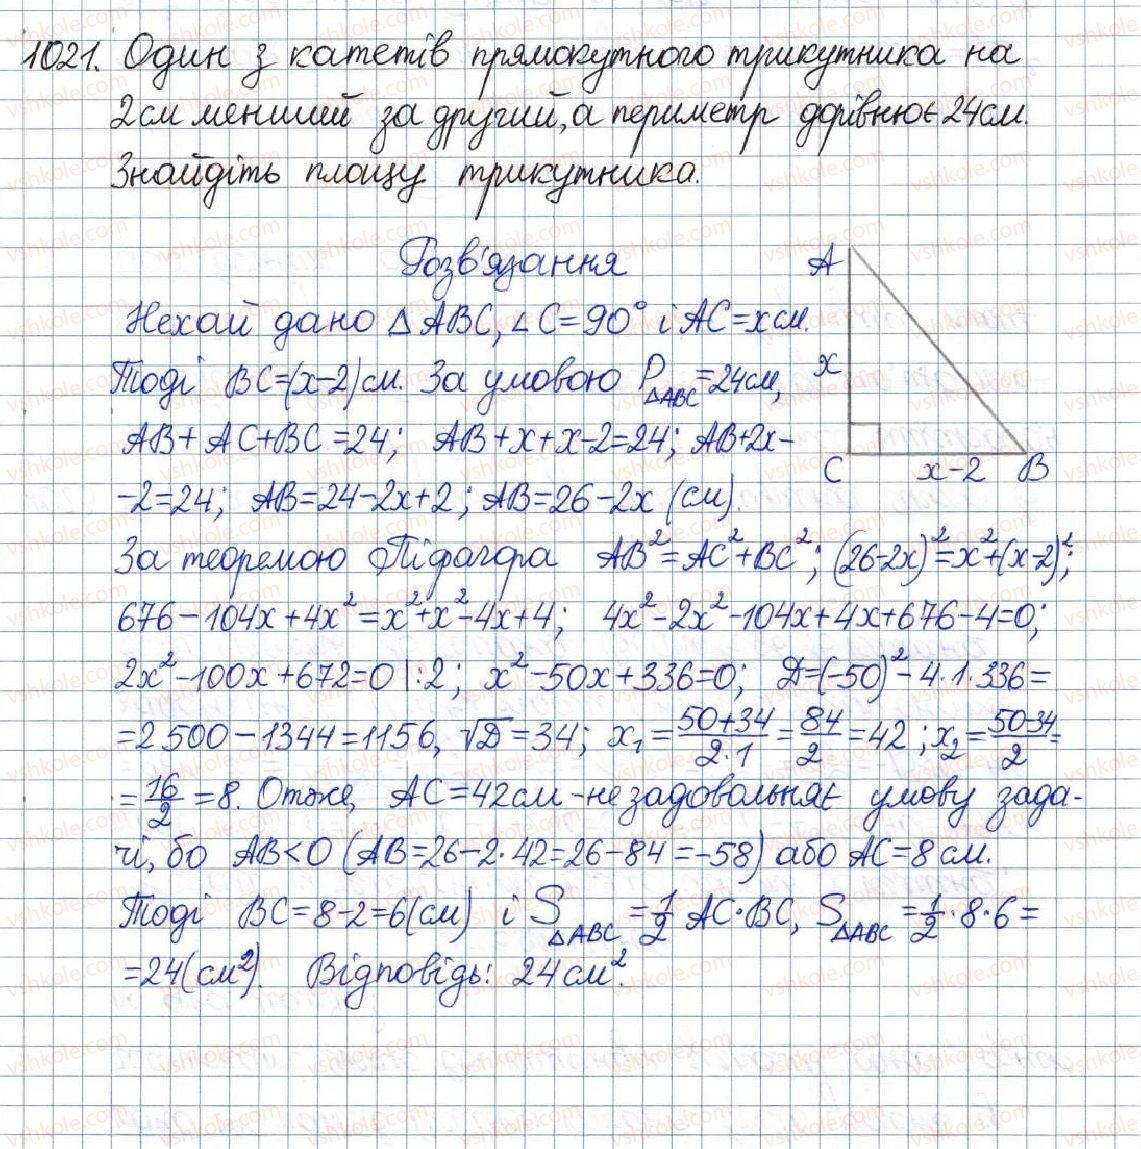 1021. Один з катетів прямокутного трикутника на
2см менший за другий, а периметр дорівнює 24см.
Знайдіть площу трикутника.
Розв'язання
Нехай дано △ABC, ∠C=90° і AC=x см.
Тоді BC=(x-2)см. За умовою P△ABC=24см,
AB+AC+BC=24; AB+x+x-2=24; AB+2x-
-2=24; AB=24-2x+2; AB=26-2x (см).
За теоремою Піфагора AB²=AC²+BC²; (26-2x)²=x²+(x-2)²;
676-104x+4x²=x²+x²-4x+4; 4x²-2x²-104x+4x+676-4=0;
2x²-100x+672=0 |:2; x²-50x+336=0; D=(-50)²-4·1·336=
=2500-1344=1156, √D=34; x₁=(50+34)/(2·1)=84/2=42; x₂=(50-34)/2=
=16/2=8. Отже, AC=42см - не задовольняє умову зада-
чі, бо AB<0 (AB=26-2·42=26-84=-58) або AC=8см.
Тоді BC=8-2=6(см) і S△ABC=1/2 AC·BC, S△ABC=1/2·8·6=
=24(см²). Відповідь: 24см².
A
x
C x-2 B